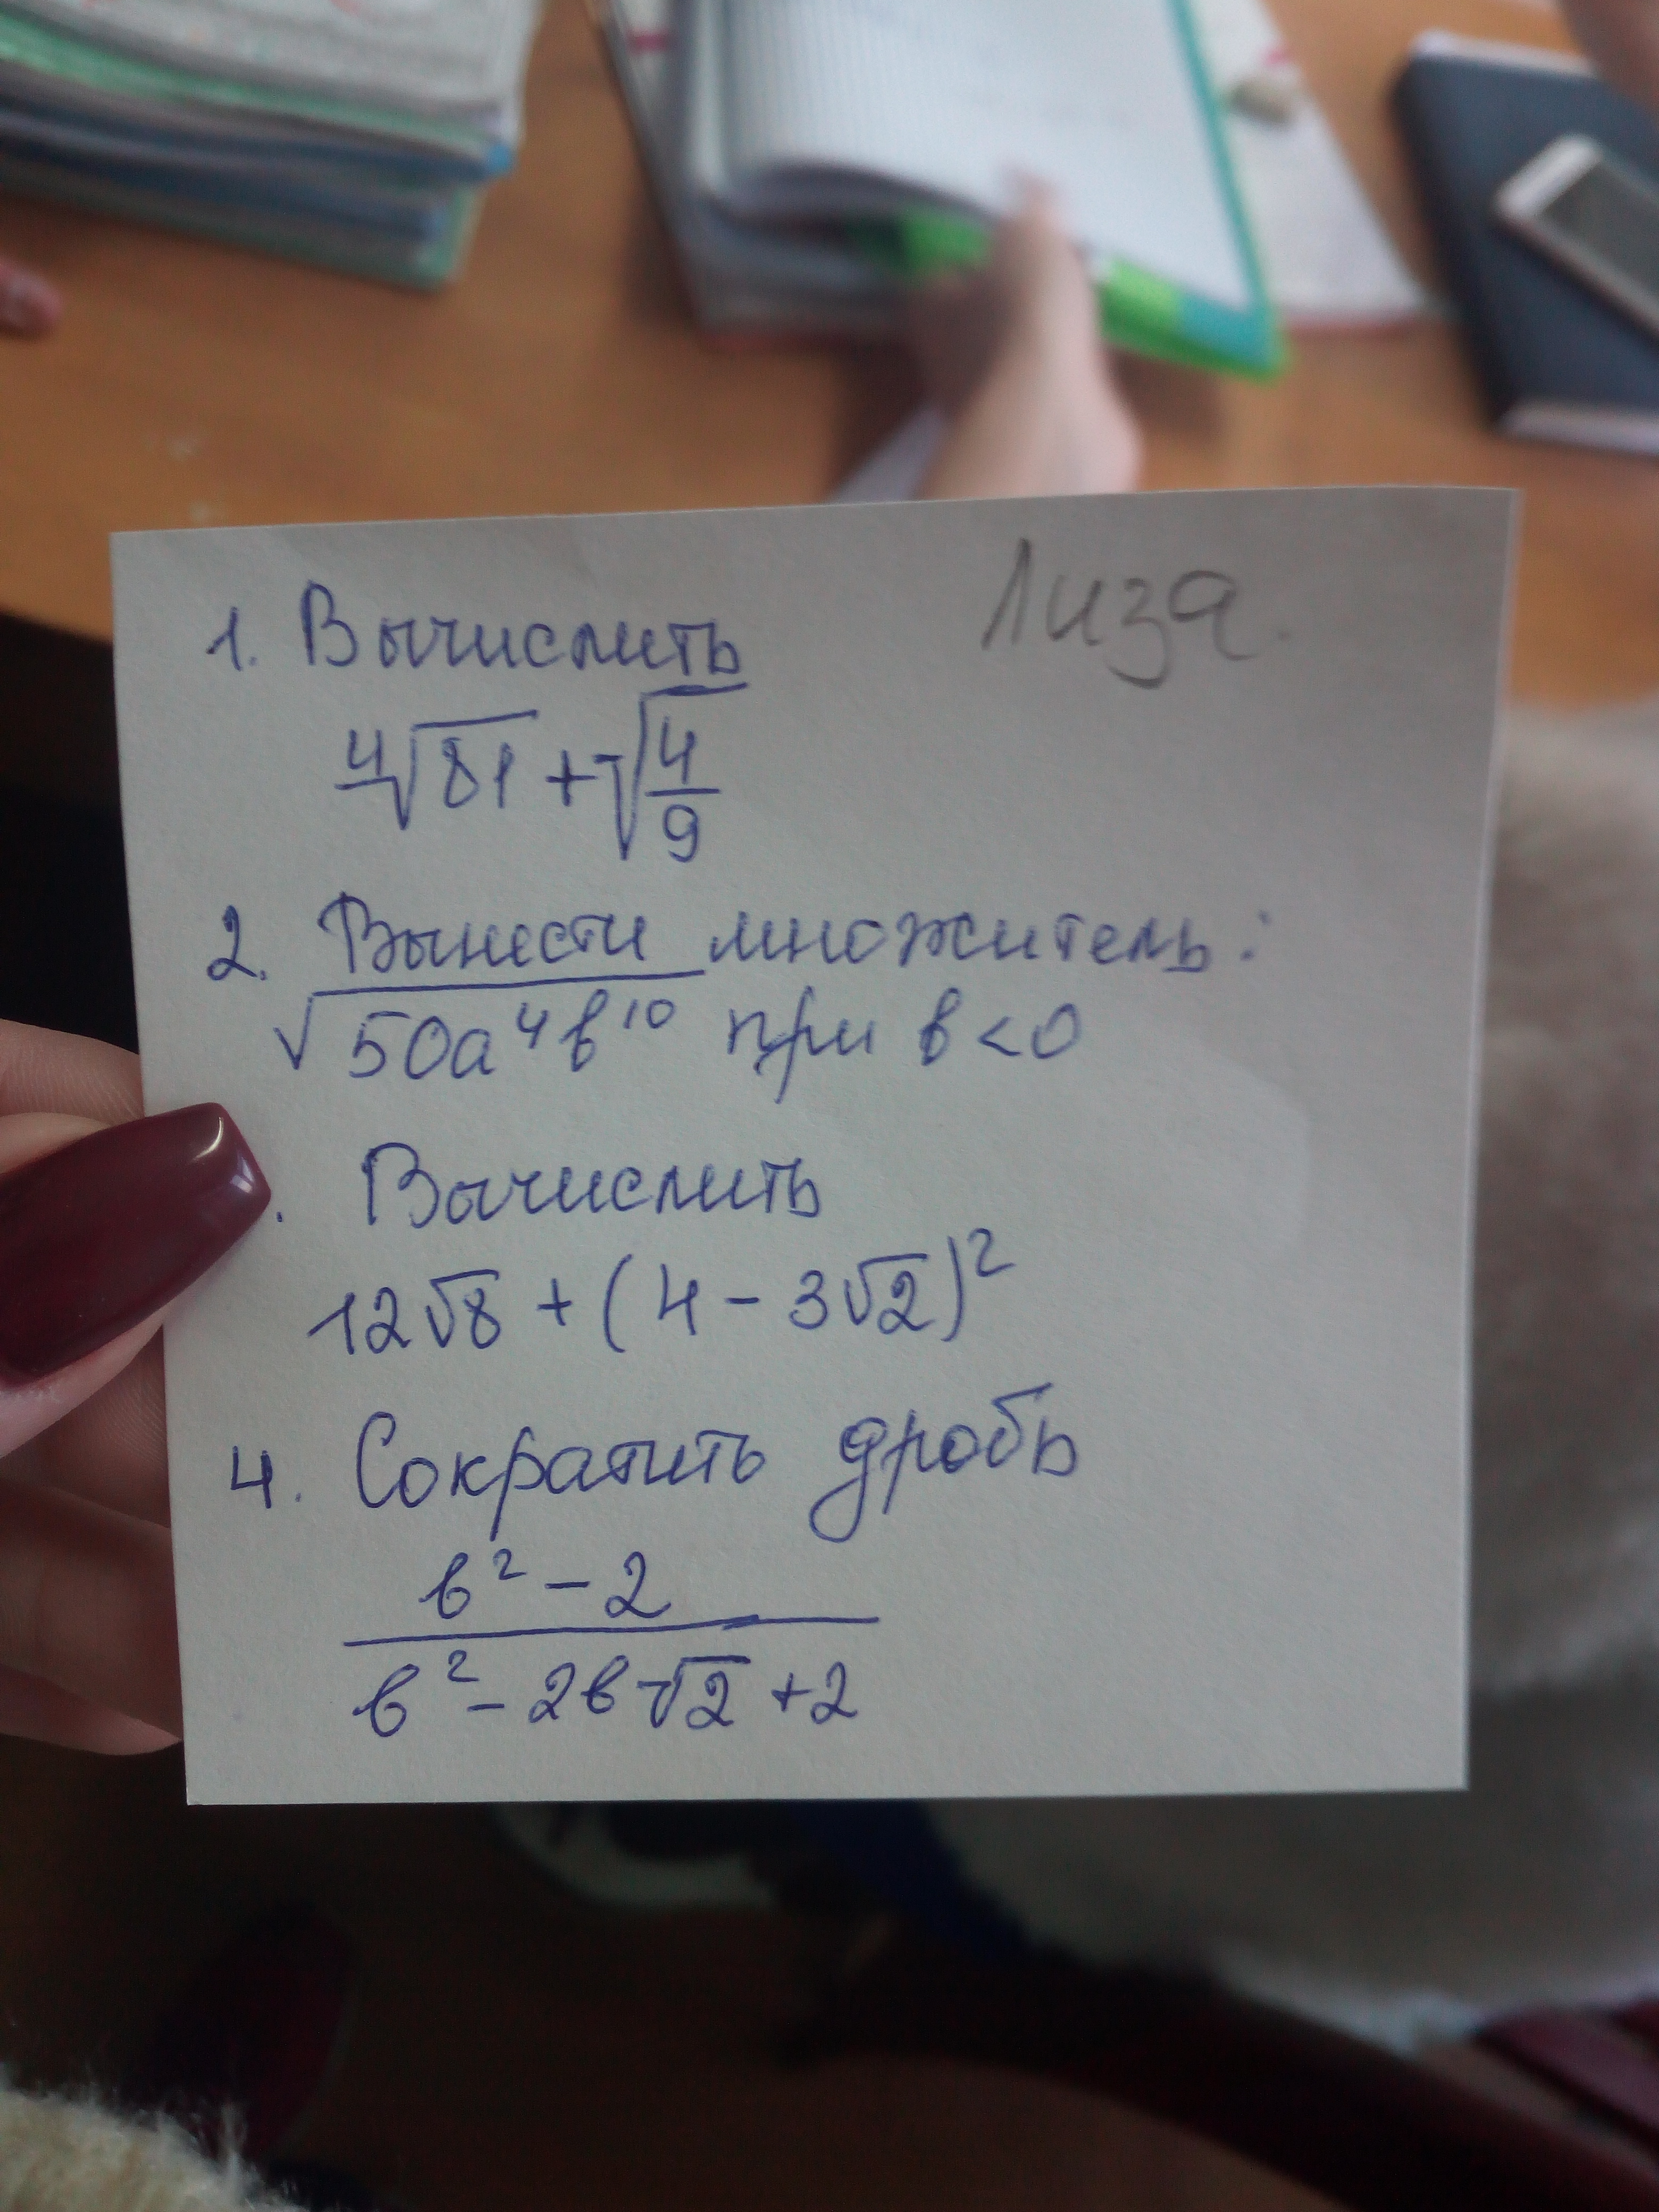 Лиза.
1. Вычислить
⁴√81 + √(4/9)
2. Вынести множитель:
√(50a⁴b¹⁰) при b<0
. Вычислить
12√8 + (4 - 3√2)²
4. Сократить дробь
b² - 2
b² - 2b√2 + 2